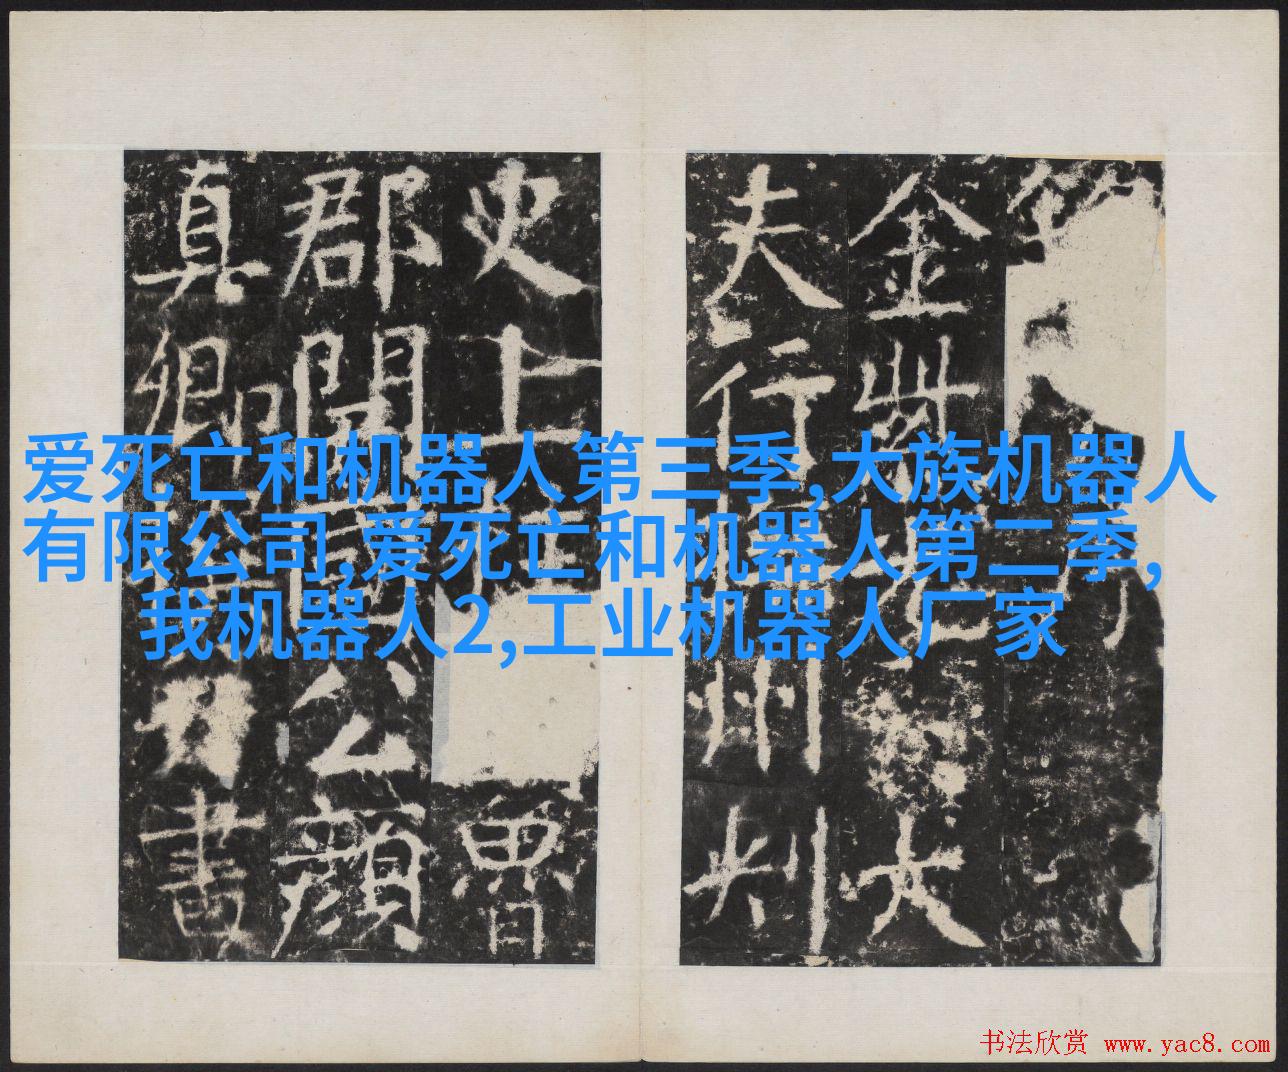 爱死亡和机器人第三季,大族机器人
有限公司,爱死亡和机器人第二季,
我机器人2,工业机器人厂家
金紫光大
夫行州刺
史上柱魯
郡開國公顏
真卿書
书法欣赏 www.yac8.com